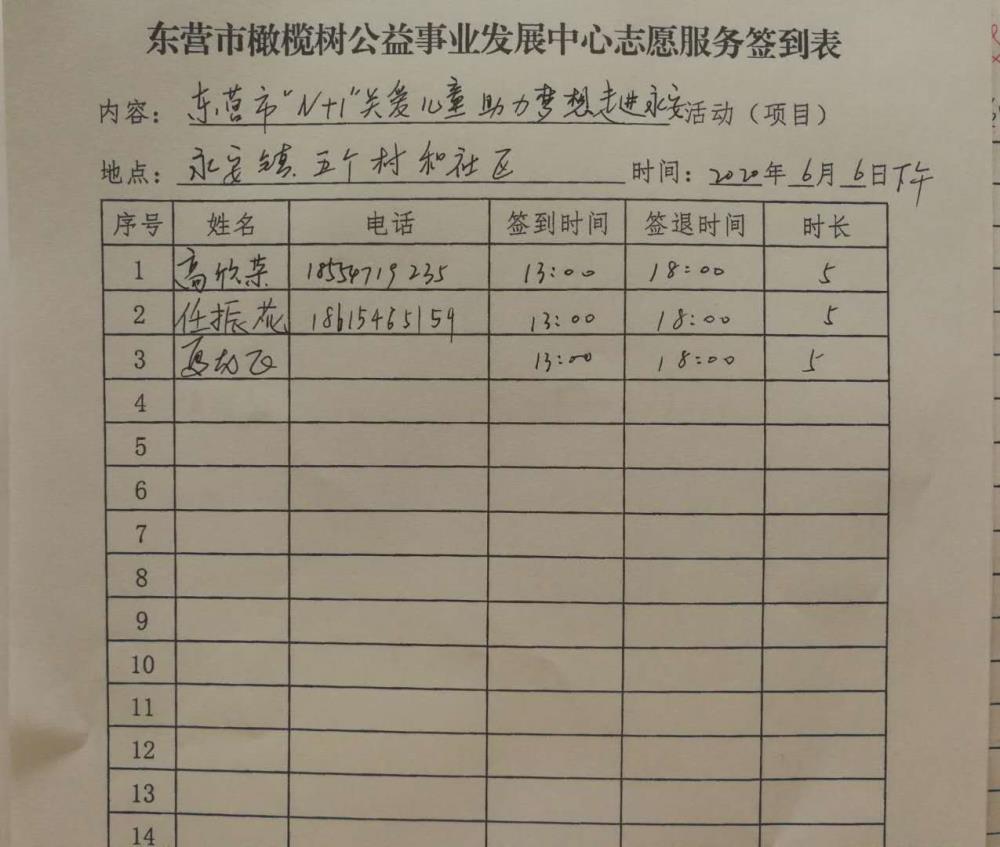 东营市橄榄树公益事业发展中心志愿服务签到表
内容：东营市“N+1”关爱儿童助力梦想走进永安活动（项目）
地点：永安镇五个村和社区 时间：2020年6月6日下午
序号 姓名 电话 签到时间 签退时间 时长
1 高欣荣 18554719235 13:00 18:00 5
2 任振花 18615465159 13:00 18:00 5
3 13:00 18:00 5
4
5
6
7
8
9
10
11
12
13
14